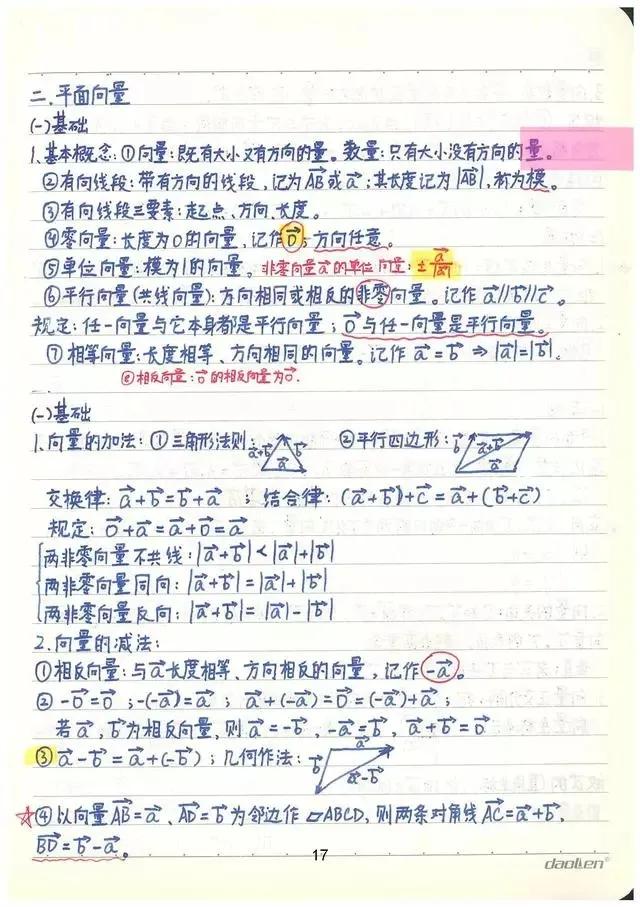 二.平面向量
(一)基础
1.基本概念:①向量:既有大小又有方向的量。数量:只有大小没有方向的量。
②有向线段:带有方向的线段,记为AB⃗或a⃗;其长度记为|AB⃗|,称为模。
③有向线段三要素:起点、方向、长度。
④零向量:长度为0的向量,记作0⃗;方向任意。
⑤单位向量:模为1的向量。非零向量a⃗的单位向量:±a⃗/|a⃗|
⑥平行向量(共线向量):方向相同或相反的非零向量。记作a⃗//b⃗//c⃗。
规定:任一向量与它本身都是平行向量;0⃗与任一向量是平行向量。
⑦相等向量:长度相等、方向相同的向量。记作a⃗=b⃗⇒|a⃗|=|b⃗|。
⑧相反向量:0⃗的相反向量为0⃗.
(一)基础
1.向量的加法:①三角形法则: a⃗+b⃗ b⃗ a⃗ ②平行四边形: b⃗ a⃗+b⃗ a⃗
交换律:a⃗+b⃗=b⃗+a⃗;结合律:(a⃗+b⃗)+c⃗=a⃗+(b⃗+c⃗)
规定:0⃗+a⃗=a⃗+0⃗=a⃗
两非零向量不共线:|a⃗+b⃗|<|a⃗|+|b⃗|
两非零向量同向:|a⃗+b⃗|=|a⃗|+|b⃗|
两非零向量反向:|a⃗+b⃗|=|a⃗|-|b⃗|
2.向量的减法:
①相反向量:与a⃗长度相等、方向相反的向量,记作-a⃗。
②-0⃗=0⃗;-(-a⃗)=a⃗;a⃗+(-a⃗)=0⃗=(-a⃗)+a⃗;
若a⃗,b⃗为相反向量,则a⃗=-b⃗,-a⃗=b⃗,a⃗+b⃗=0⃗
③a⃗-b⃗=a⃗+(-b⃗);几何作法: b⃗ a⃗ a⃗-b⃗
☆④以向量AB⃗=a⃗、AD⃗=b⃗为邻边作▱ABCD,则两条对角线AC⃗=a⃗+b⃗,
BD⃗=b⃗-a⃗。
17
daolien®